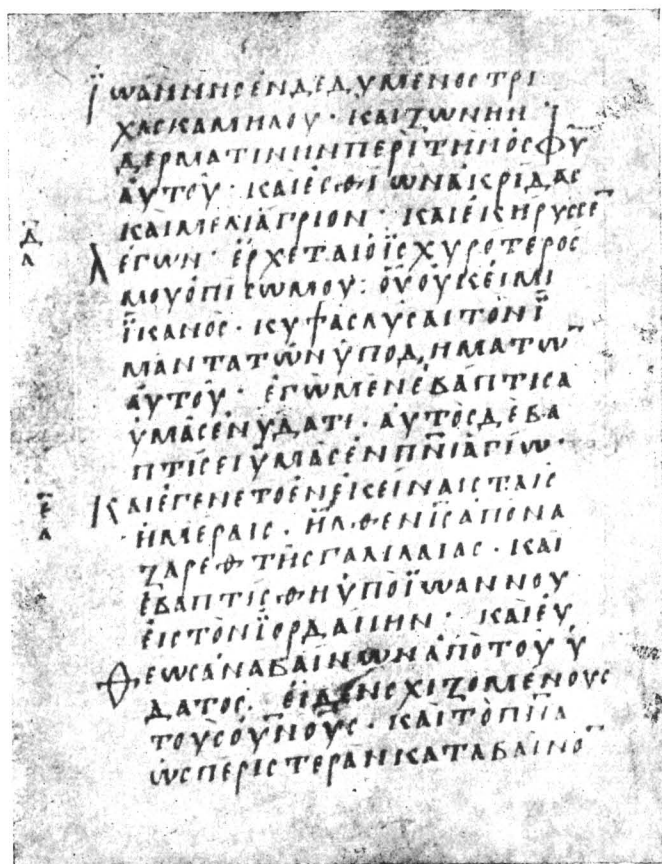 ἸωάΝΝΗς ἐΝΔεΔΥΜέΝΟς ΤΡΙ
ΧΑς ΚΑΜΗΛΟΥ · ΚΑΙ ΖώΝΗΝ
ΔεΡΜΑΤΙΝΗΝ ΠεΡὶ ΤΗΝ ὀςΦῦ
ἀΥΤΟΥ · ΚΑΙ ἐςΘΙωΝ ἀΚΡΙΔΑς
ΚΑΙ ΜεΛΙ ἄΓΡΙΟΝ · ΚΑΙ ἐΚΗΡΥςςε̄
Δ
Λ
ΛεΓωΝ · ἔΡΧεΤΑΙ ὁ ἰςΧΥΡΟΤεΡΟς
ΜΟΥ ὀΠΙςω ΜΟΥ : οὗ οὐΚ εἰΜὶ
ἱΚΑΝΟς · ΚΥΨΑς ΛΥςΑΙ ΤὸΝ ἱ
ΜΑΝΤΑ ΤῶΝ ὑΠΟΔΗΜΑΤω̄
ἀΥΤΟΥ · ἐΓὼ ΜεΝ ἐΒΑΠΤΙςΑ
ὑΜᾶς ἐΝ ὕΔΑΤΙ · ἀΥΤὸς Δὲ ΒΑ
ΠΤΙςεΙ ὑΜᾶς ἐΝ Π̅Ν̅Ι̅ ἁΓΙω ·
ε
Λ
ΚΑΙ ἐΓεΝεΤΟ ἐΝ ἐΚεΙΝΑΙς ΤΑΙς
ἡΜεΡΑΙς · ἦΛΘεΝ Ι̅ς̅ ἀΠὸ ΝΑ
ΖΑΡεΘ ΤΗς ΓΑΛΙΛΑΙΑς · ΚΑΙ
ἐΒΑΠΤΙςΘΗ ὑΠὸ ἸωάΝΝΟΥ
εἰς ΤὸΝ ἸΟΡΔΑΝΗΝ · ΚΑΙ εὐ
ΘεωςἀΝΑΒΑΙΝωΝ ἀΠὸ ΤΟΥ ὕ
ΔΑΤΟς · εἶΔεΝ ςΧΙΖΟΜέΝΟΥς
ΤΟΥς ΟΥ̅ΝΟΥς · ΚΑΙ ΤὸΠ̅Ν̅Α̅
ὡς ΠεΡΙςΤεΡὰΝ ΚΑΤΑΒΑΙΝΟ̄